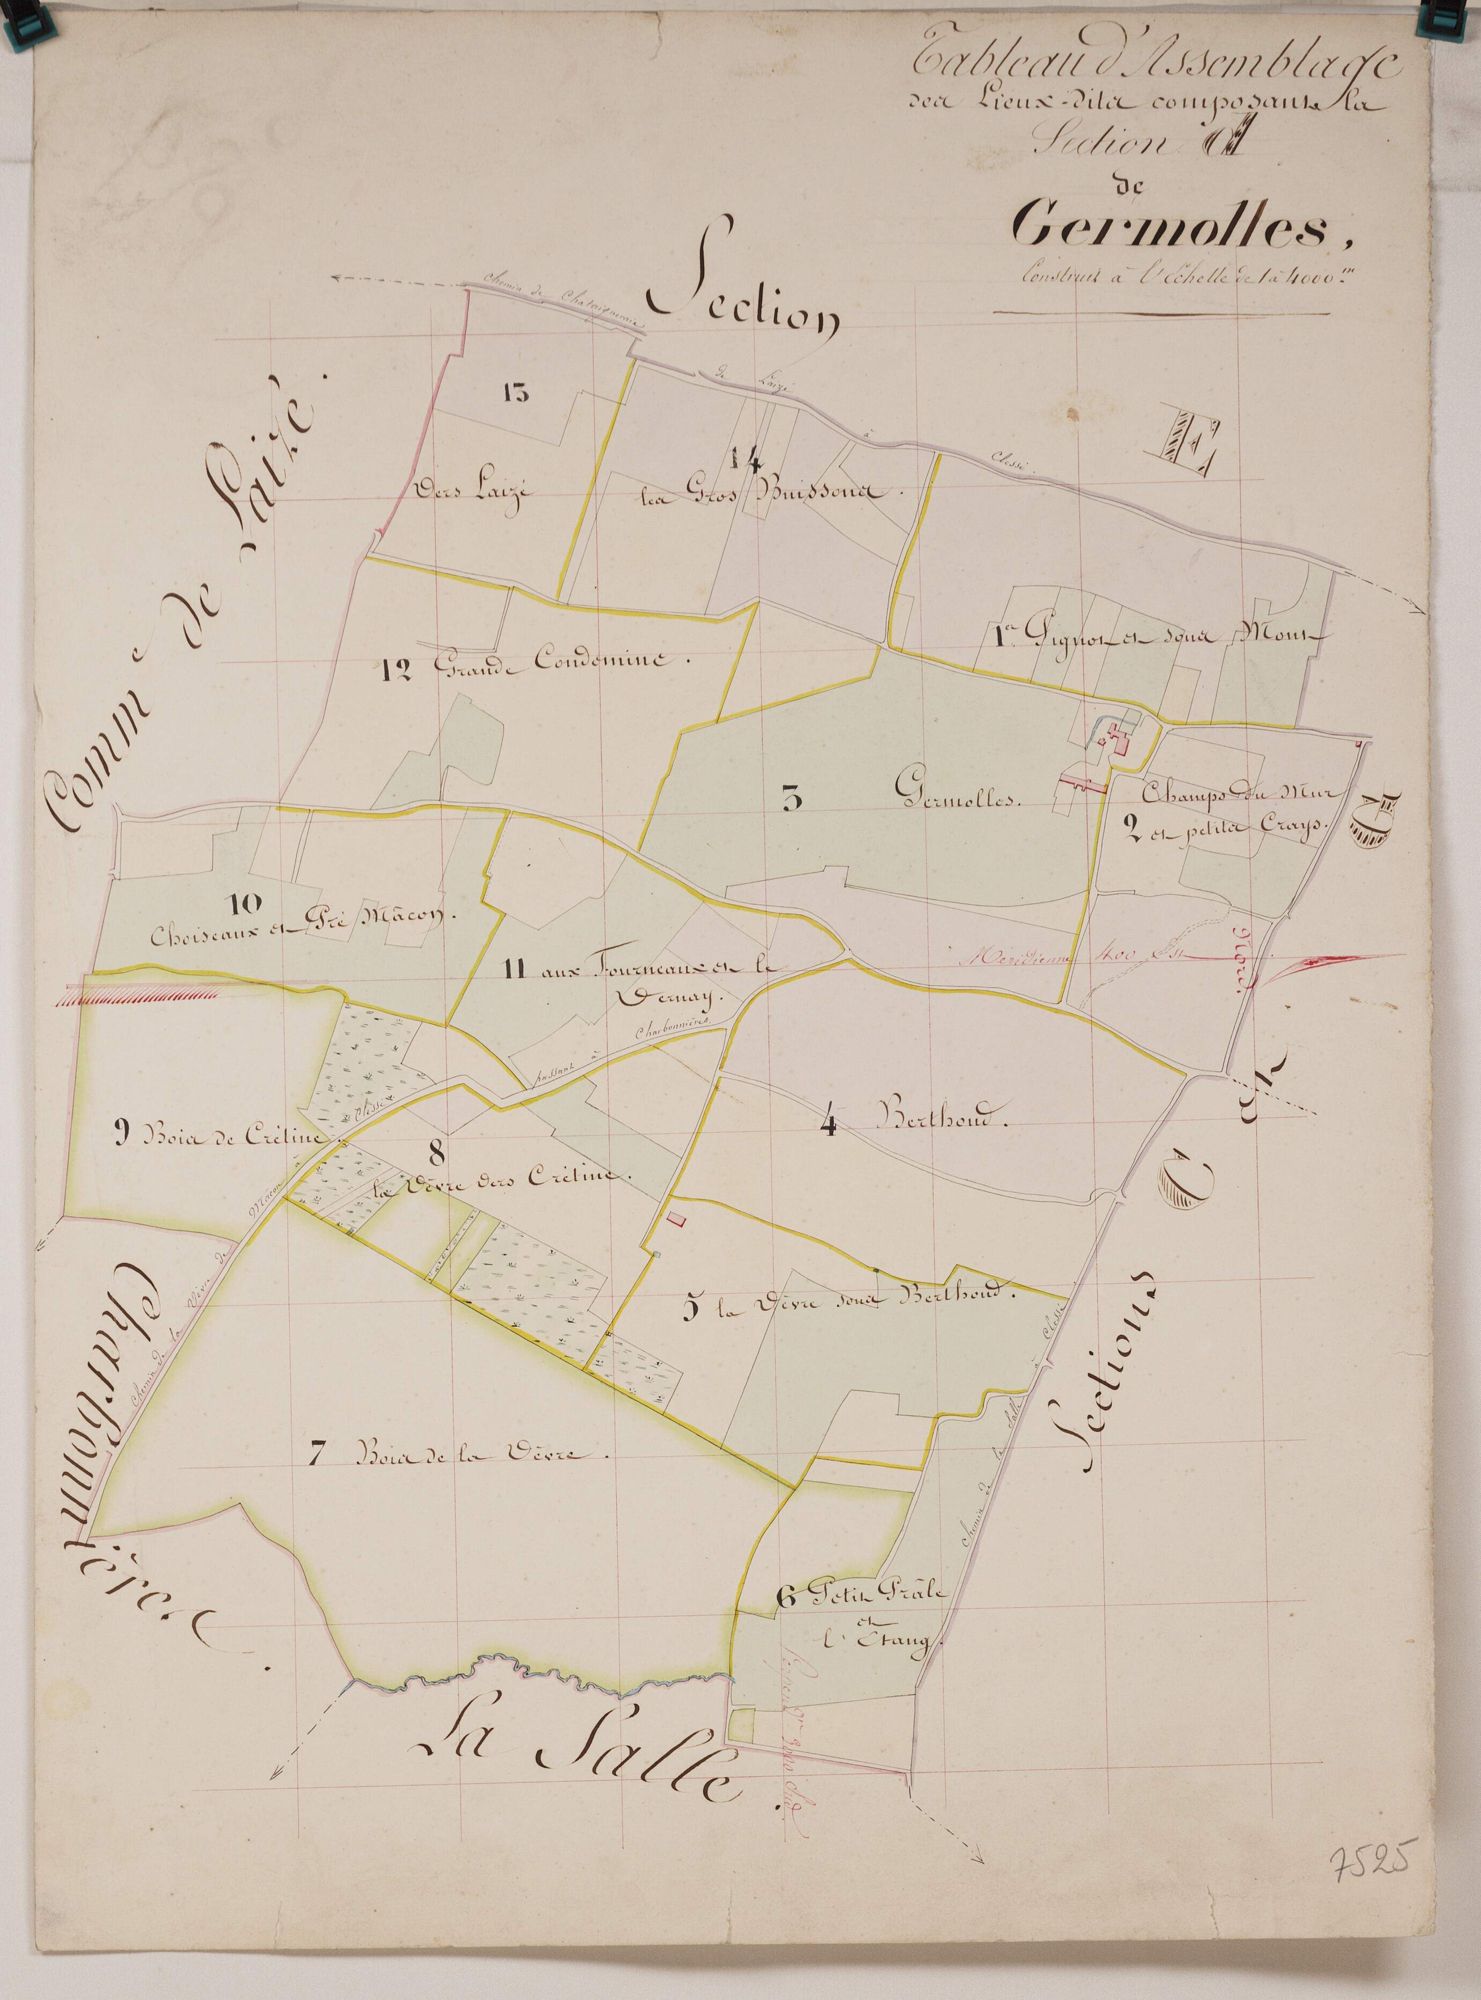 Tableau d'Assemblage
des Lieux-dits composant la
Section
de
Germolles,
Construit à l'Echelle de 1 à 4000.m
Section
E
Chemin de Chataigneraie
de Laizé à Clessé.
Comm.e de Laizé.
13
Vers Laizé
14
les Gros Buissons.
1er Pignot et sous Mont
12 Grande Condemine.
3 Germolles.
Champs du Mur
2 et petits Crays.
10
Choiseaux et Pré Mâcon.
11 aux Fourneaux et le
Vernay.
Méridienne 400 Est
Nord.
9 Bois de Crétine.
8
la Vêvre vers Crétine.
Chemin de la Vêvre de Mâcon à Clessé passant à Charbonnières.
4 Berthoud.
5 la Vêvre sous Berthoud.
7 Bois de la Vêvre.
6 Petit Prâle
et
l'Etang.
chemin de la Salle à Clessé
Sections C et
Charbonnières.
La Salle.
Sud
7525